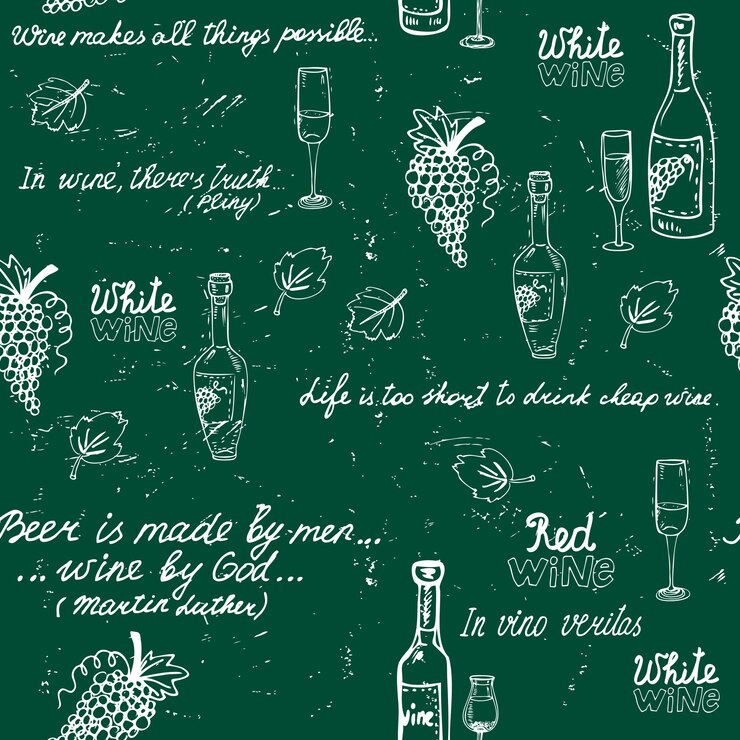 Wine makes all things possible...
White
WiNe
In wine, there's truth...
(Pliny)
White
WiNe
Life is too short to drink cheap wine.
Beer is made by men...
...wine by God...
(Martin Luther)
Red
WiNe
In vino veritas
White
WiNe
Vine